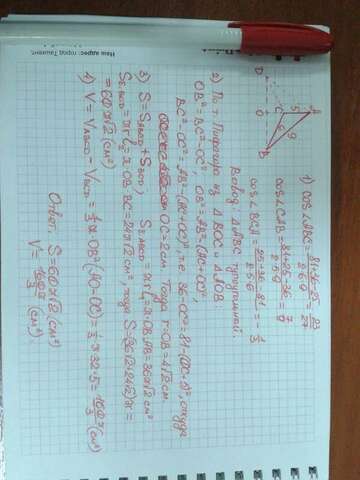 Наш адрес: город Ташкент,
A
B
C
D
O
5
6
9
1) cos∠ABC = (81+36-25)/(2·6·9) = 23/27
cos∠CAB = (81+25-36)/(2·5·9) = 7/9
cos∠BCA = (25+36-81)/(2·5·6) = -1/3
Вывод: △ABC тупоугольный.
2) По т. Пифагора из △BOC и △AOB:
OB² = BC²-OC² OB² = AB²-(AC+OC)²,
BC²-OC² = AB²-(AC+OC)², т.е. 36-OC² = 81-(OC+5)², откуда
OC = 2см. Тогда r = OB = 4√2 см.
3) S = S_ABCD + S_BCD; S_ABCD = πrL₁ = π·OB·AB = 36π√2 см²
S_BCD = πrL₂ = π·OB·BC = 24π√2 см², тогда S = (36√2+24√2)π =
= 60π√2 (см²)
V = V_ABCD - V_BCD = 1/3 π·OB²(AO-OC) = 1/3 π·32·5 = 160π/3 (см³)
Ответ: S = 60π√2 (см²)
V = 160π/3 (см³)